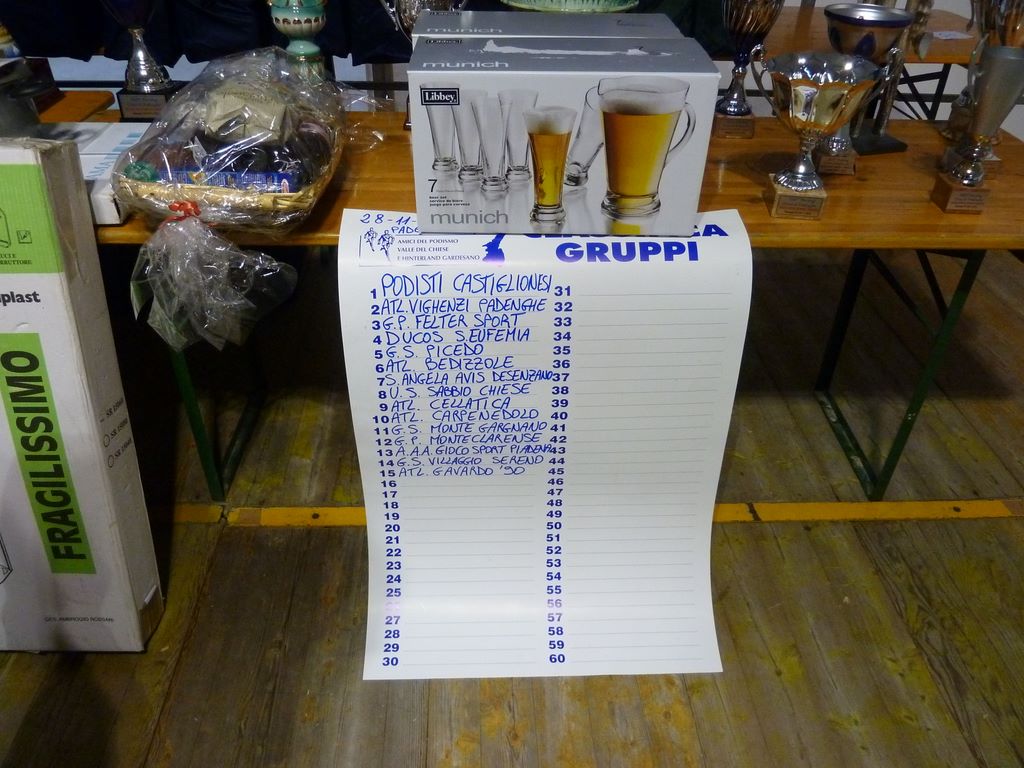 munich
munich
Libbey
7
beer set
service de bière
juego para cerveza
munich
28-11-
AMICI DEL PODISMO
VALLE DEL CHIESE
E HINTERLAND GARDESANO
GRUPPI
1 PODISTI CASTIGLIONESI
2 ATL. VIGHENZI PADENGHE
3 G.P. FELTER SPORT
4 DUCOS S.EUFEMIA
5 G.S. PICEDO
6 ATL. BEDIZZOLE
7 S. ANGELA AVIS DESENZANO
8 U.S. SABBIO CHIESE
9 ATL. CELLATICA
10 ATL. CARPENEDOLO
11 G.S. MONTE GARGNANO
12 G.P. MONTECLARENSE
13 A.A.A. GIOCO SPORT PIADENA
14 G.S. VILLAGGIO SERENO
15 ATL. GAVARDO '90
16
17
18
19
20
21
22
23
24
25
27
28
29
30
31
32
33
34
35
36
37
38
39
40
41
42
43
44
45
46
47
48
49
50
51
52
53
54
55
56
57
58
59
60
plast
FRAGILISSIMO